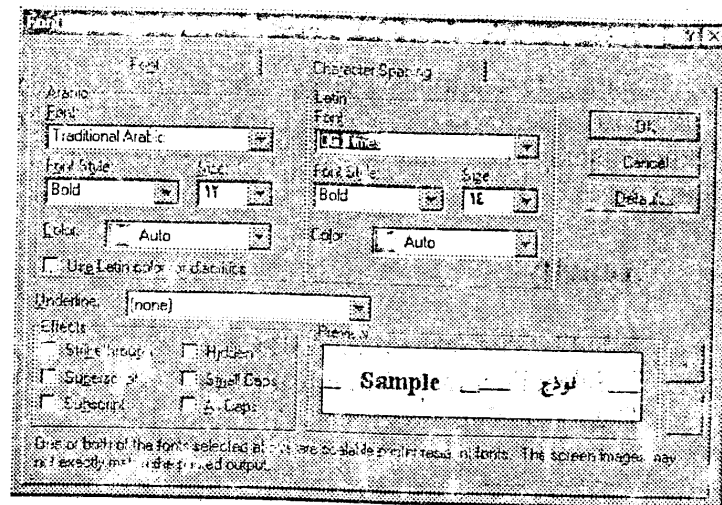 Font
Font
Character Spacing
Arabic
Font:
Traditional Arabic
Font Style:
Size:
Bold
١٢
Color:
Auto
Use Latin color for diacritics
Latin
Font
Font Style:
Size
Bold
١٤
Color:
Auto
OK
Cancel
Default...
Underline:
(none)
Effects
Strikethrough
Hidden
Superscript
Small Caps
Subscript
All Caps
Preview
Sample
نموذج
One or both of the fonts selected above are scalable printer resident fonts. The screen images may
not exactly match the printed output.